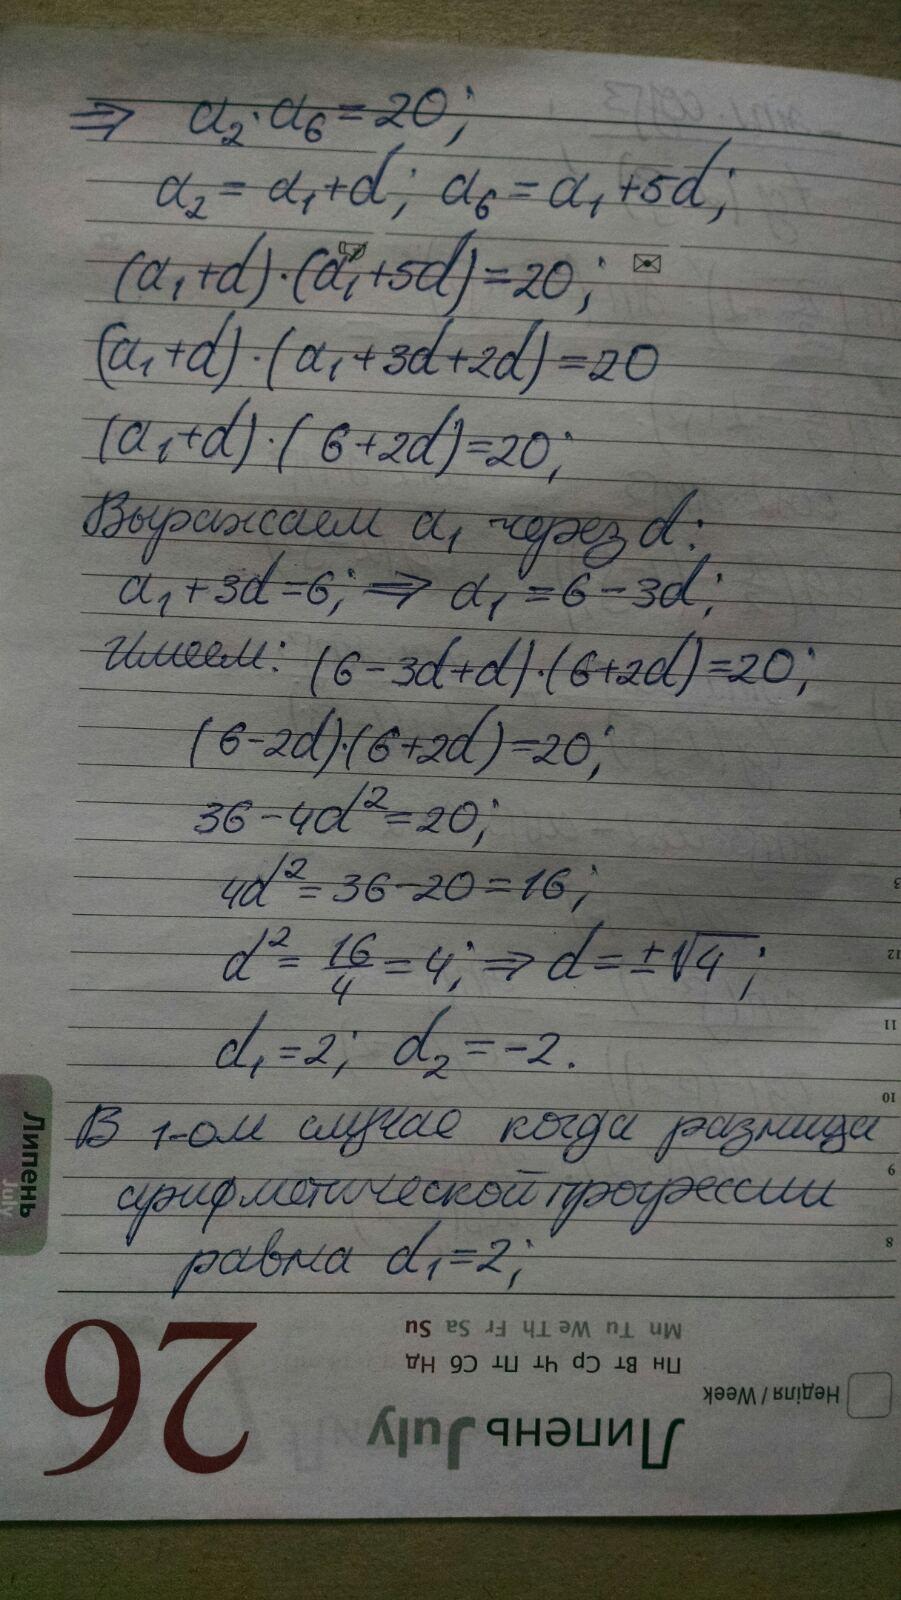 ⇒ a₂·a₆=20;
a₂=a₁+d; a₆=a₁+5d;
(a₁+d)·(a₁+5d)=20;
(a₁+d)·(a₁+3d+2d)=20
(a₁+d)·(6+2d)=20;
Выражаем a₁ через d:
a₁+3d=6; ⇒ a₁=6-3d;
Имеем: (6-3d+d)·(6+2d)=20;
(6-2d)·(6+2d)=20;
36-4d²=20;
4d²=36-20=16;
d²=16/4=4; ⇒ d=±√4;
d₁=2; d₂=-2.
В 1-ом случае когда разница
арифметической прогрессии
равна d₁=2;
13
12
11
10
9
8
Липень
July
26
Mn Tu We Th Fr Sa Su
Пн Вт Ср Чт Пт Сб Нд
Неділя / Week
Липень July